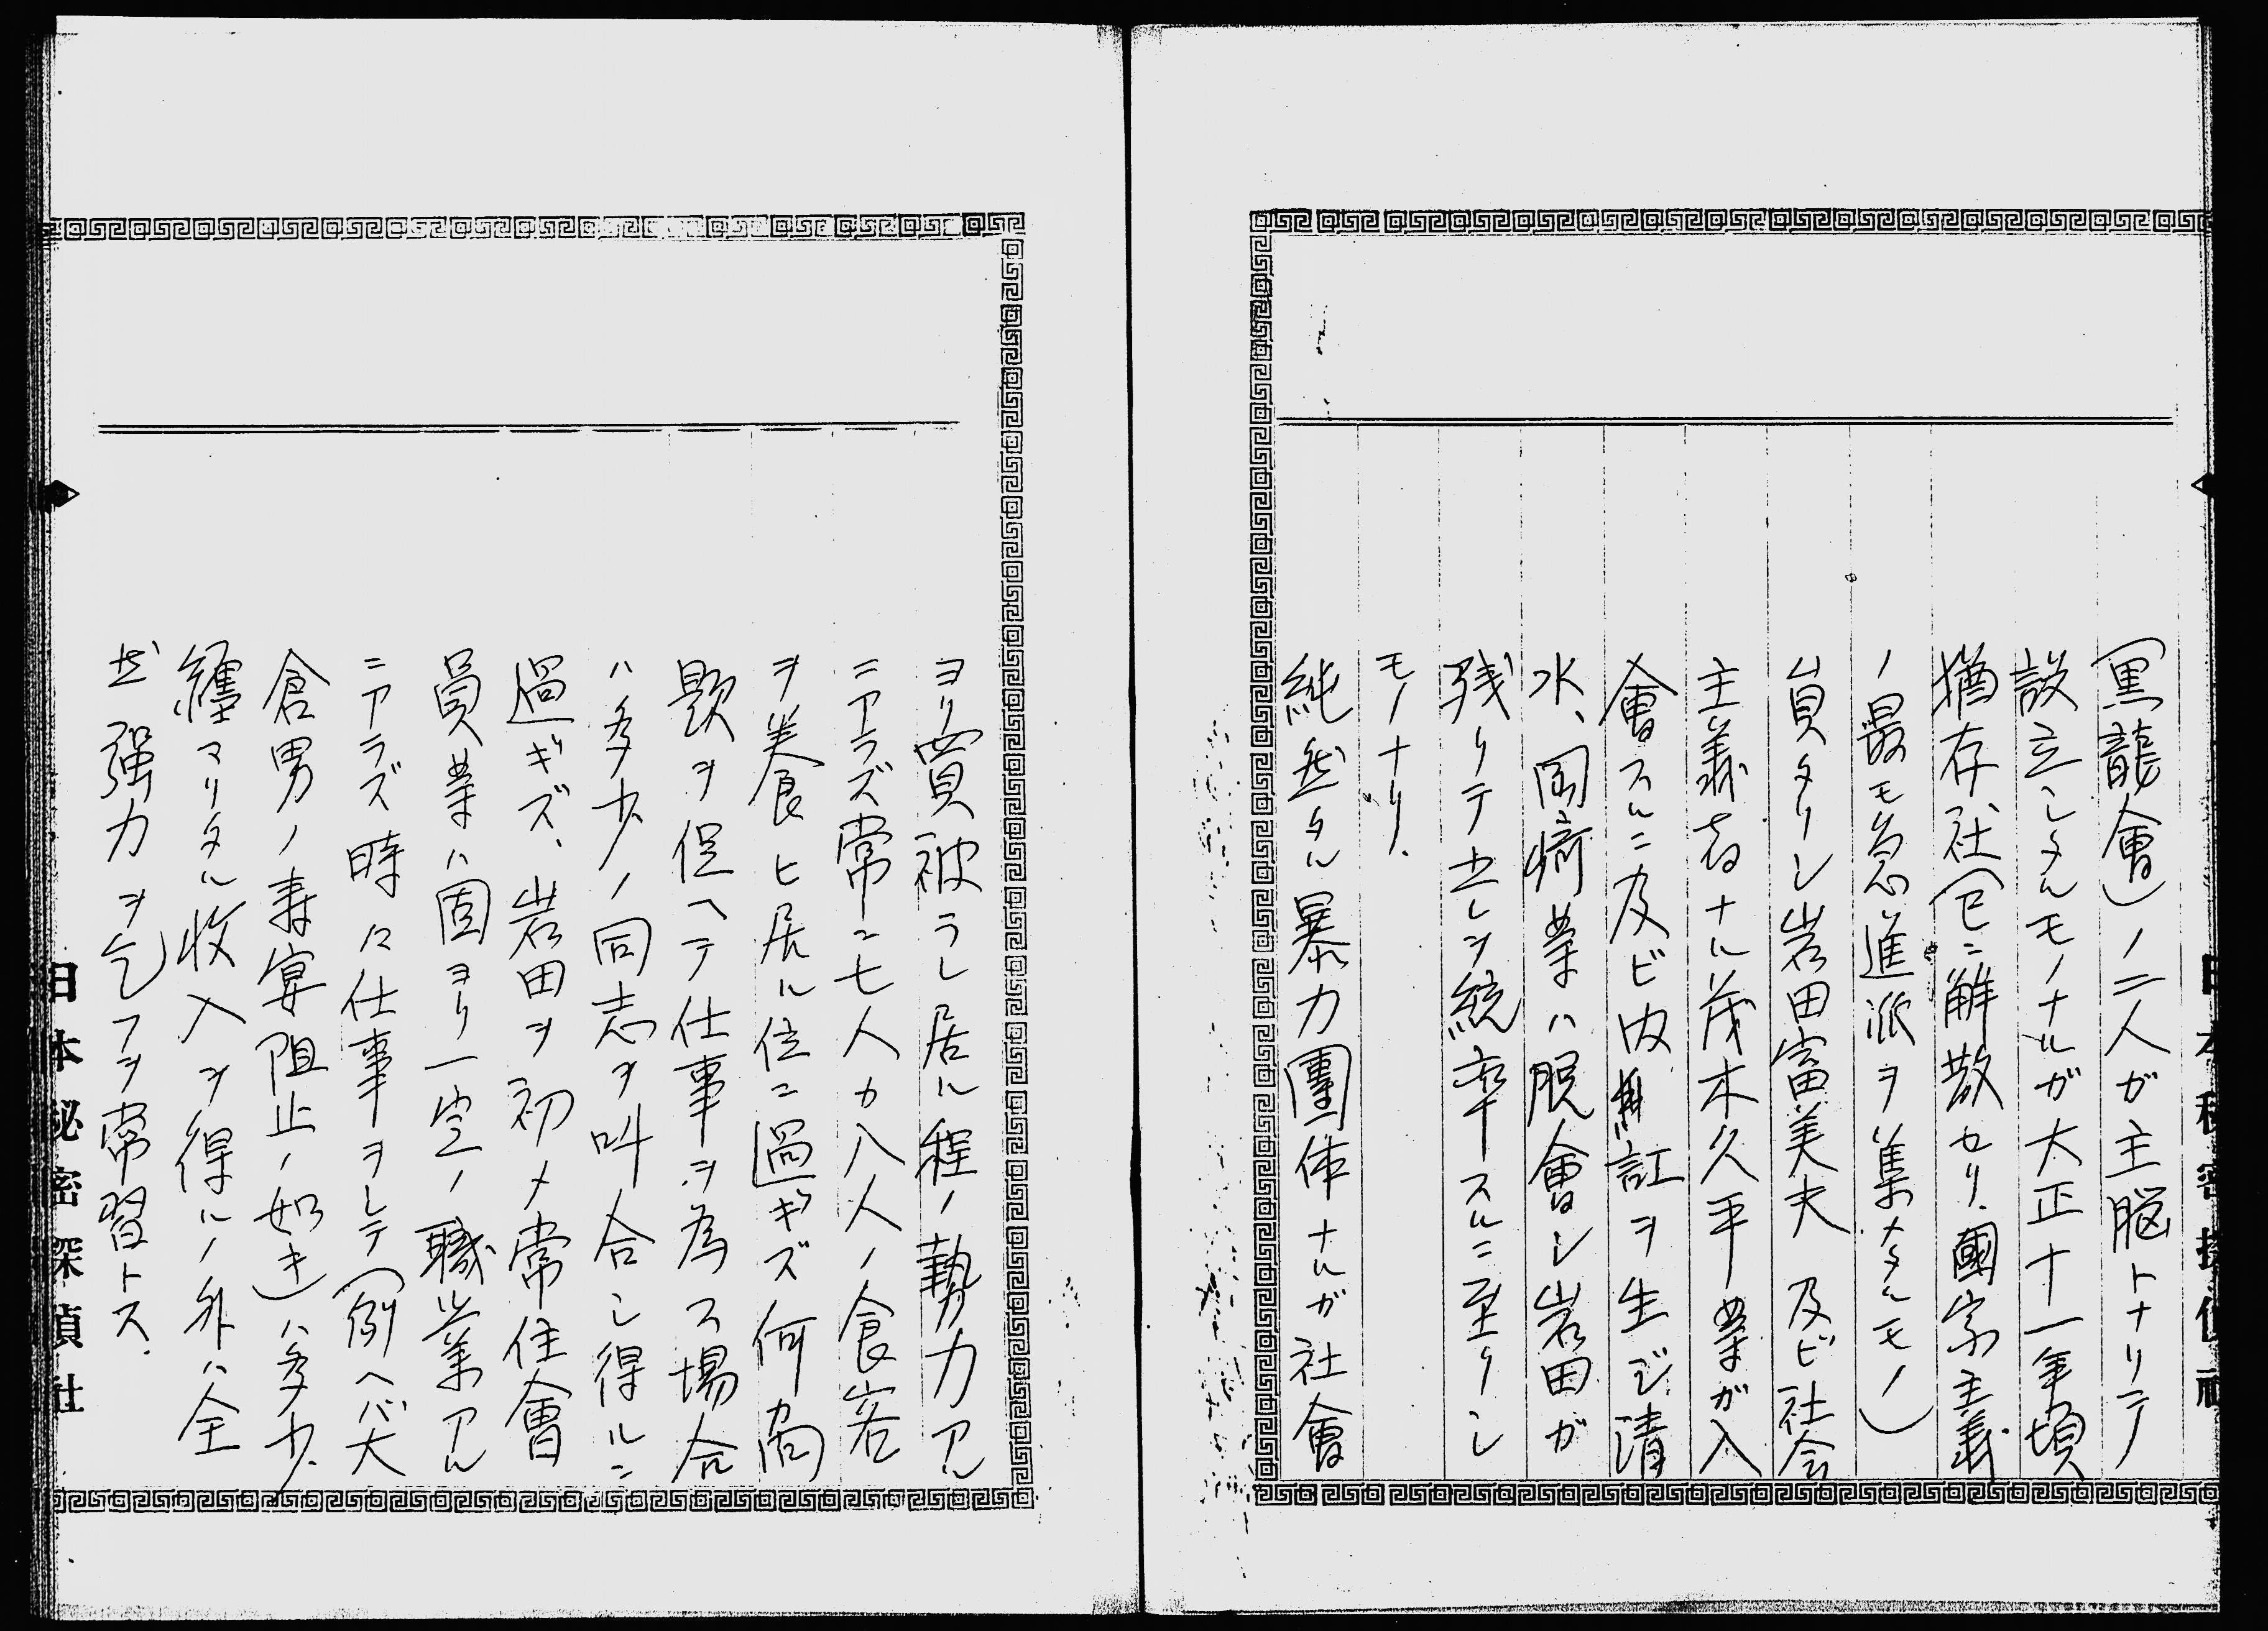 (黒龍會)ノ二人ガ主脳トナリテ
設立シタルモノナルガ大正十一年頃
猶存社(已ニ解散セリ.國家主義
ノ最モ急進派ヲ集メタルモノ)
員タリシ岩田富美夫及ビ社会
主義者ナル茂木久平等ガ入
會スルニ及ビ内訌ヲ生ジ清
水、岡崎等ハ脱會シ岩田ガ
残リテ之レヲ統率スルニ至リシ
モノナリ.
純然タル暴力團体ナルガ社會
ヨリ買被ラレ居ル程ノ勢力アル
ニアラズ常ニ七人カ八人ノ食客
ヲ養ヒ居ル位ニ過ギズ何向
題ヲ促ヘテ仕事ヲ為ス場合
ハ多少ノ同志ヲ叫合シ得ルニ
過ギズ、岩田ヲ初メ常住會
員等ハ固ヨリ一定ノ職業アル
ニアラズ時々仕事ヲシテ(例ヘバ大
倉男ノ寿宴阻止ノ如キ)ハ多少
纏マリタル收入ヲ得ルノ外ハ全
然強力ヲ乞フヲ常習トス.
日本秘密探偵社